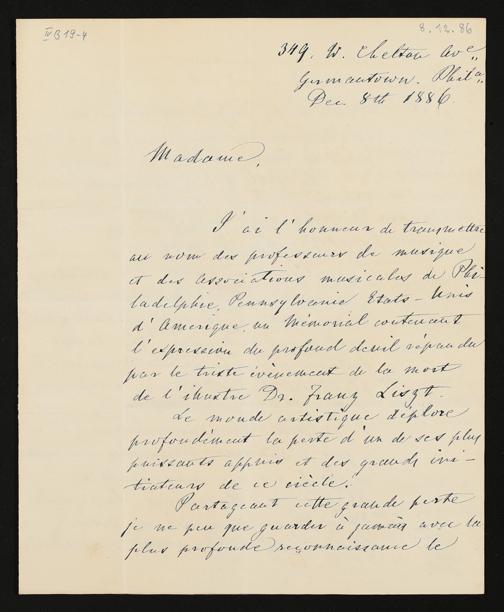 IV B 19-4
8.12.86
349. W. Chelton Ave.,
Germantown. Phila.,
Dec 8th 1886
Madame,
J'ai l'honneur de transmettre
au nom des professeurs de musique
et des associations musicales de Phi-
ladelphie, Pennsylvanie Etats-Unis
d'Amérique, un Mémorial contenant
l'expression du profond deuil répandu
par le triste évènement de la mort
de l'illustre Dr. Franz Liszt.
Le monde artistique déplore
profondément la perte d'un de ses plus
puissants appuis et des grands ini-
tiateurs de ce siècle.
Partageant cette grande perte
je ne peu que guarder à jamais avec la
plus profonde reconnaissance le